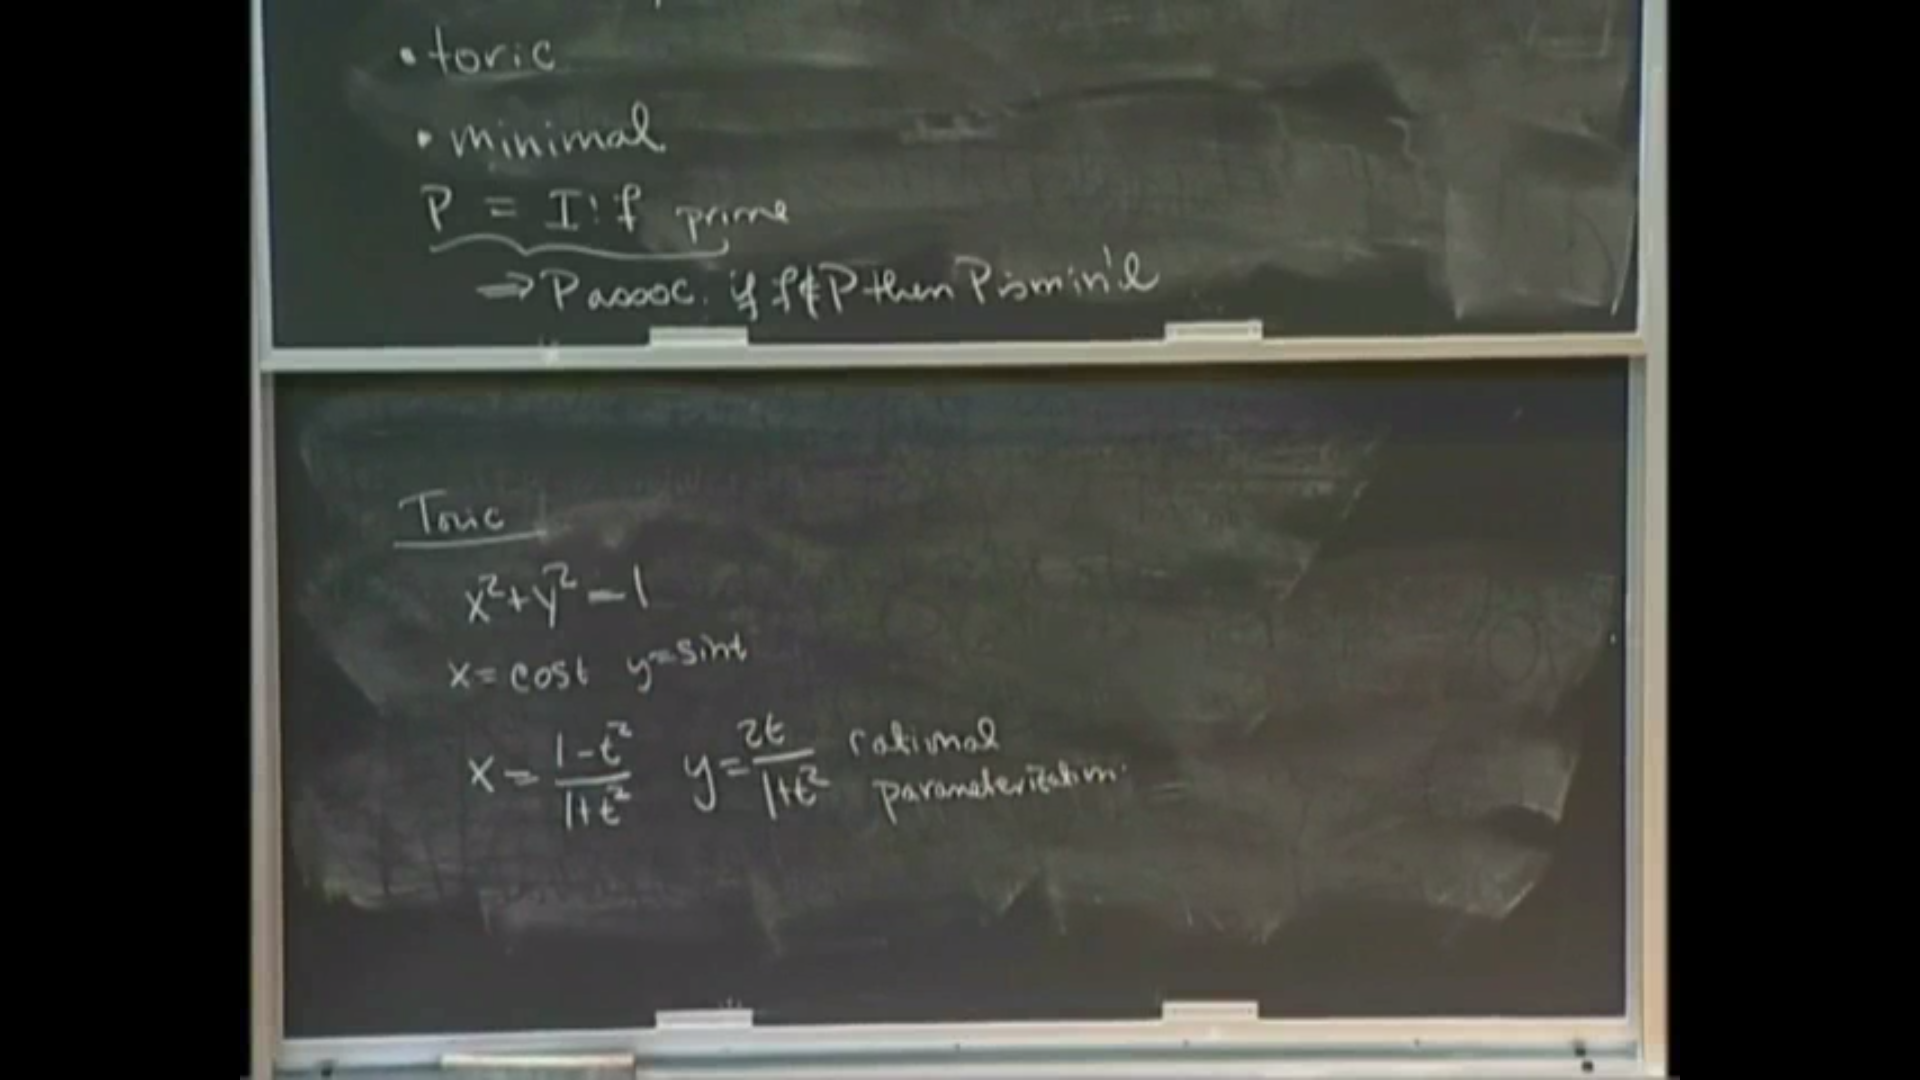 • toric
• minimal
P = I:f prime
⇒ P assoc. if f∉P then P is min'l
Toric
x²+y²-1
x=cost y=sint
x = \frac{1-t²}{1+t²} y = \frac{2t}{1+t²} rational
parameterization.